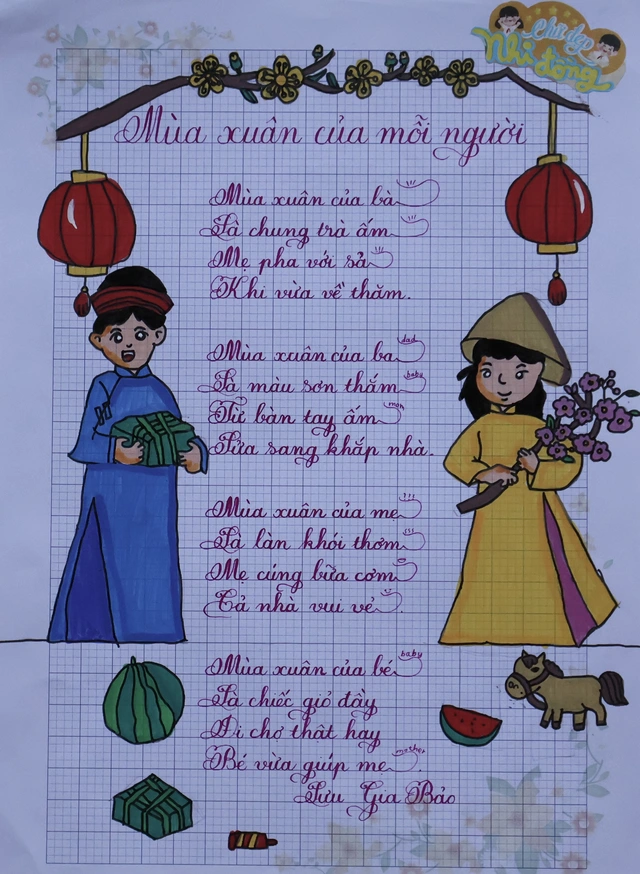 Chữ đẹp
Nhi đồng
Mùa xuân của mỗi người
Mùa xuân của bà
Là chung trà ấm
Mẹ pha với sả
Khi vừa về thăm.
Mùa xuân của ba dad
Là màu sơn thắm baby
Từ bàn tay ấm mom
Sửa sang khắp nhà.
Mùa xuân của mẹ
Là làn khói thơm
Mẹ cúng bữa cơm
Cả nhà vui vẻ.
Mùa xuân của bé baby
Là chiếc giỏ đầy
Đi chợ thật hay
Bé vừa guíp mẹ mother
Lưu Gia Bảo